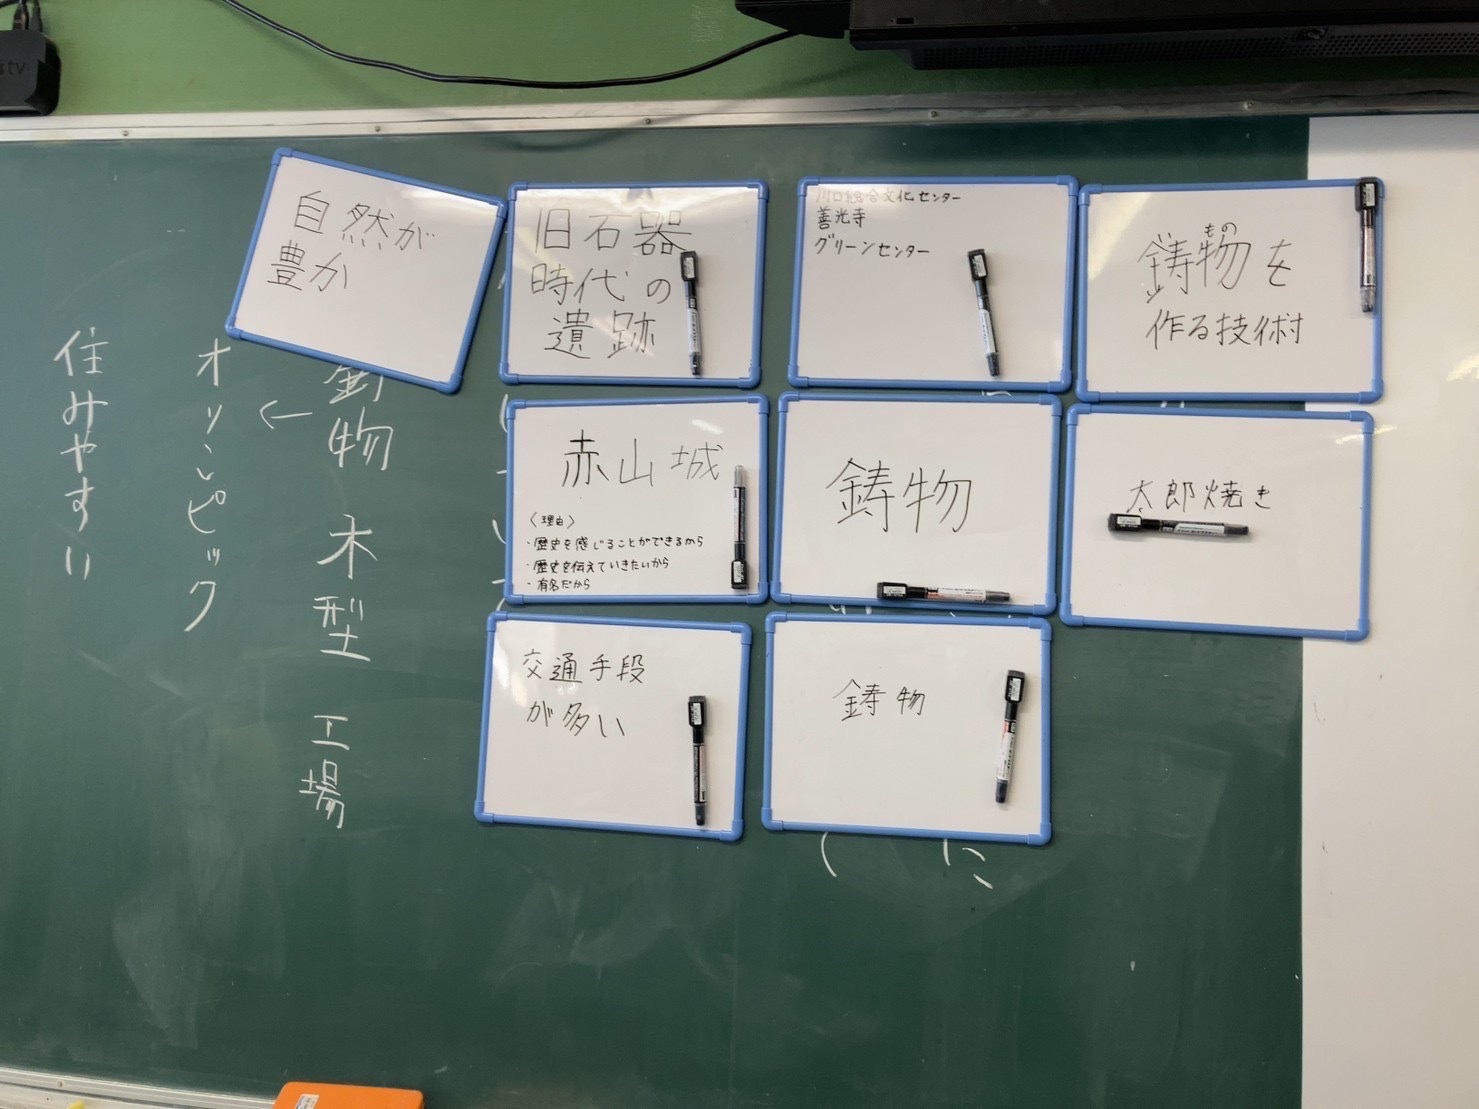 自然が
豊か
旧石器
時代の
遺跡
川口総合文化センター
善光寺
グリーンセンター
もの
鋳物を
作る技術
赤山城
〈理由〉
・歴史を感じることができるから
・歴史を伝えていきたいから
・有名だから
鋳物
太郎焼き
交通手段
が多い
鋳物
鋳物 木型 工場
←
オリンピック
住みやすい
tv